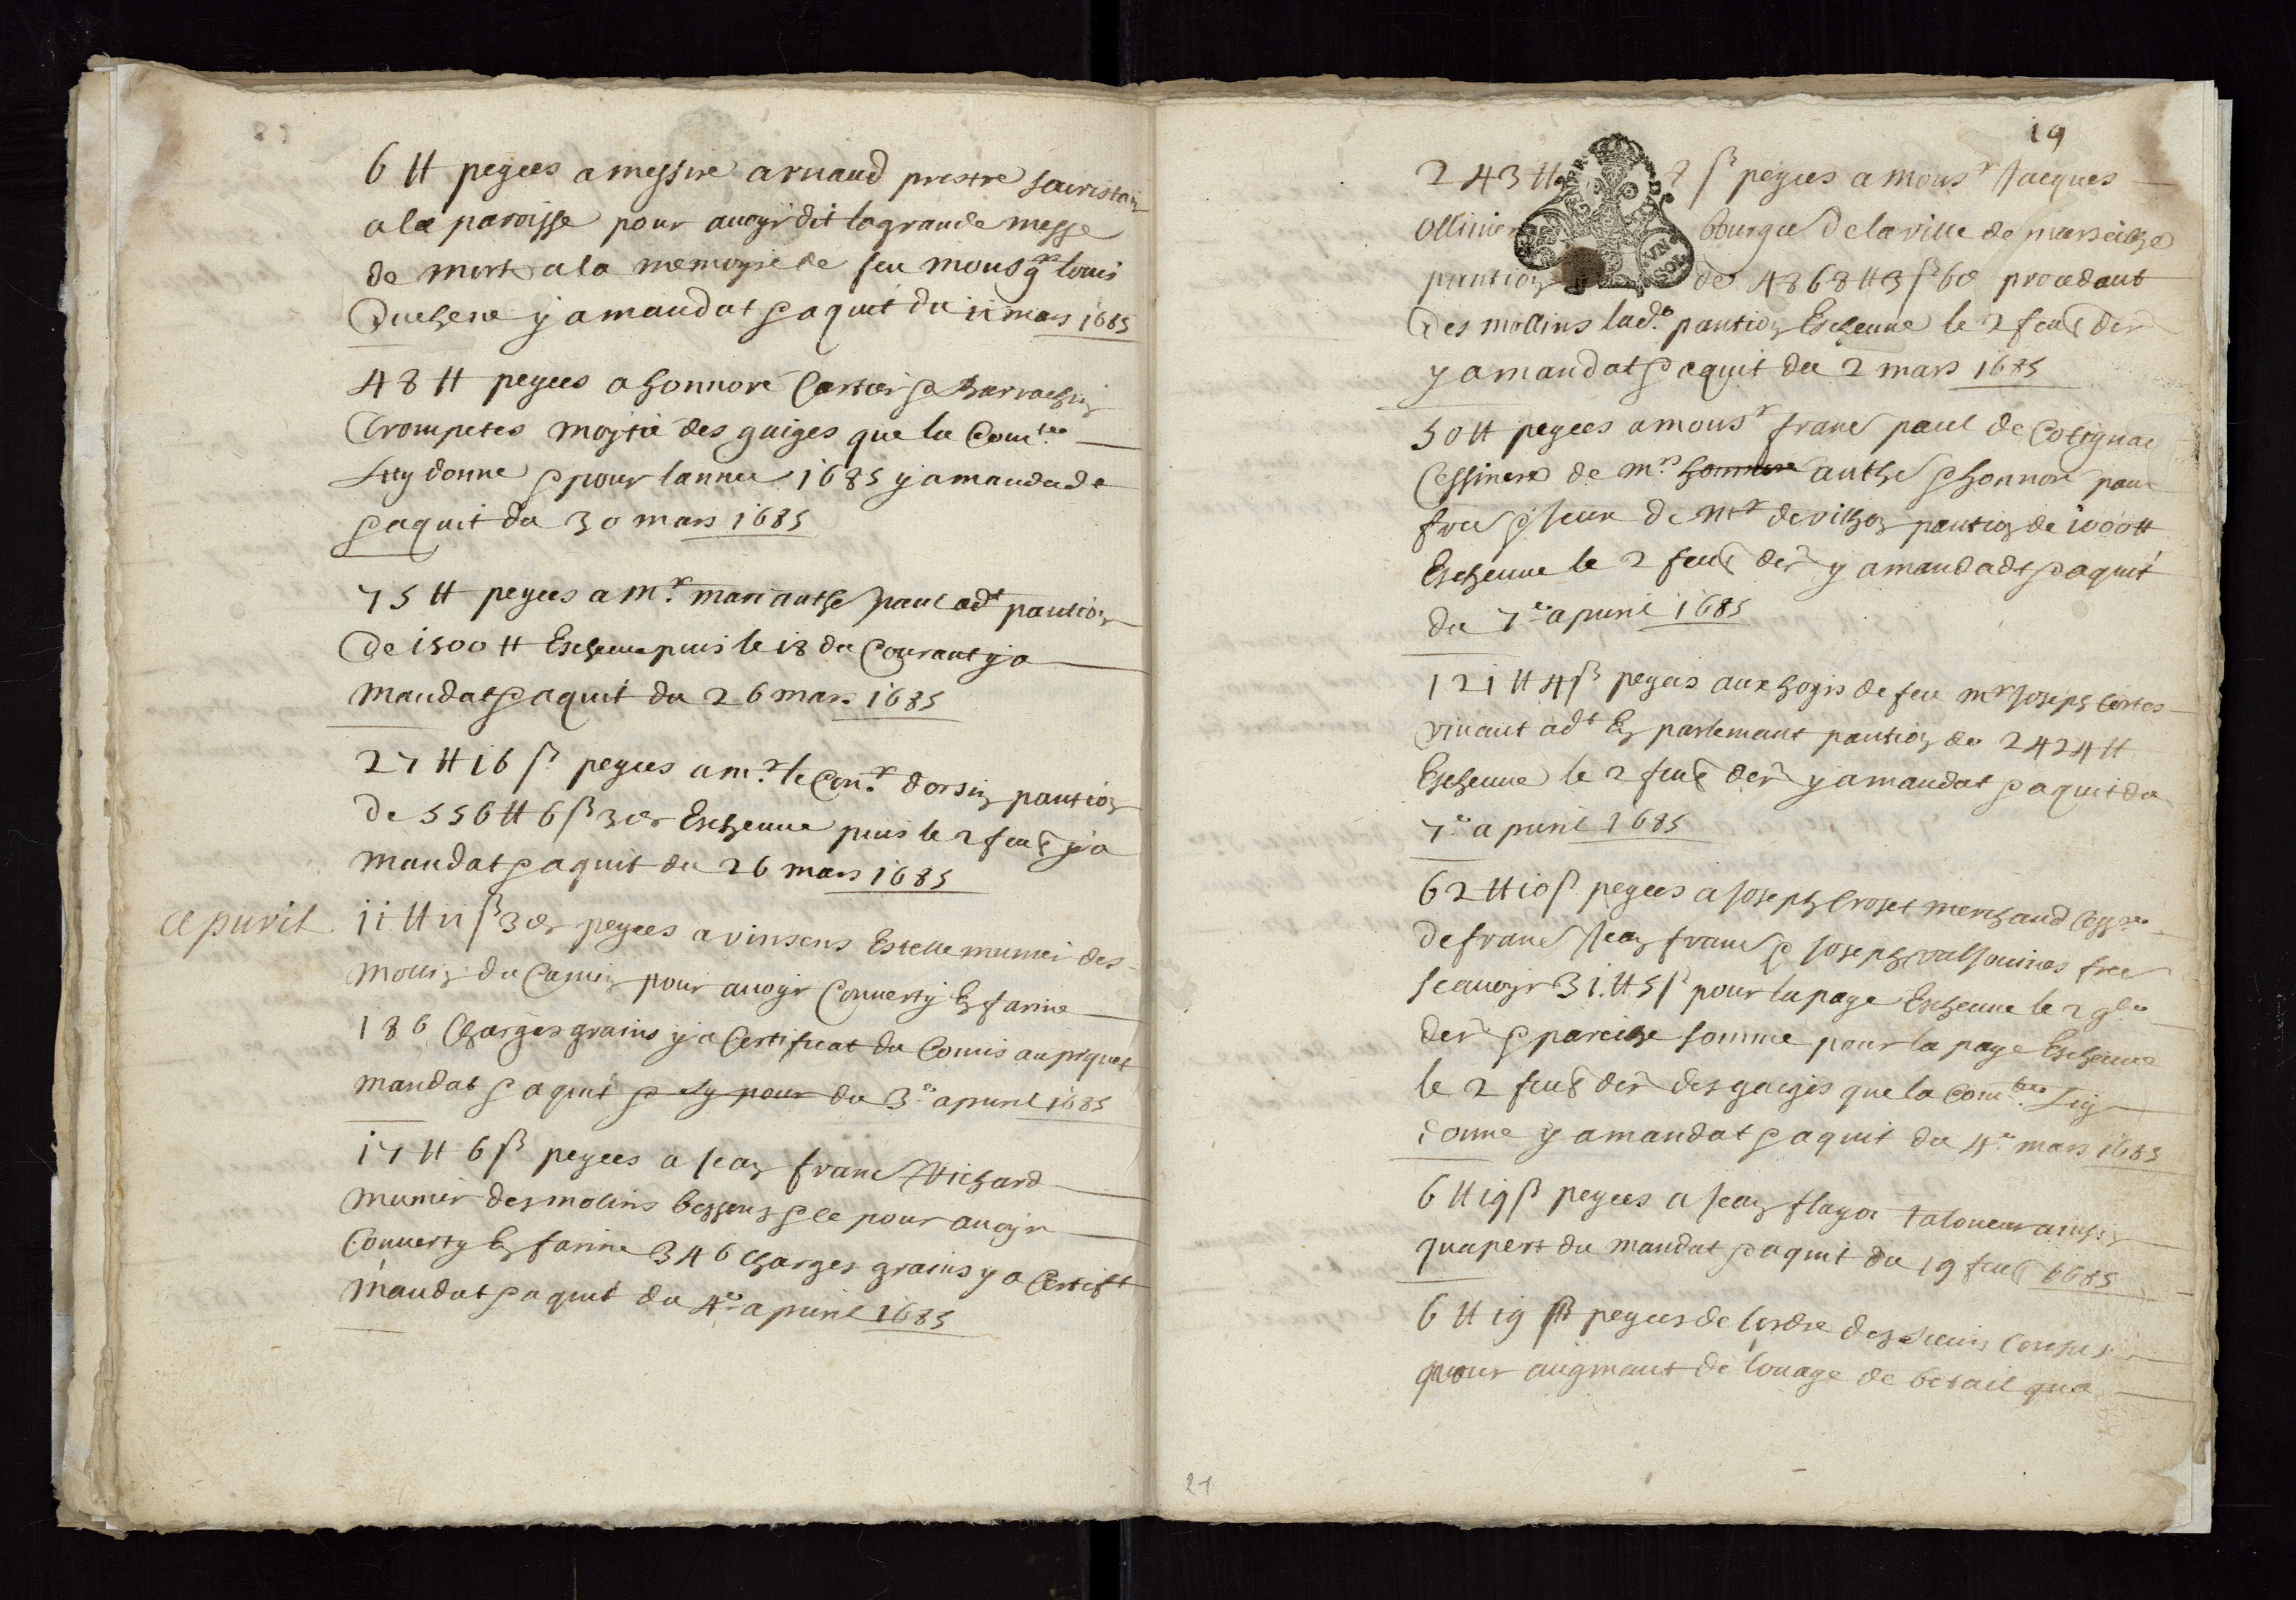 6 tt peyees a messire arnaud prestre sacristain
a la paroisse pour auoyr dit la grande messe
de morts a la memoyre de feu mousgr louis
Duchene y a mandat & aquit du 11 mars 1685
48 tt peyees a honnore Cartier & Barrachin
Trompetes moytie des gaiges que la Comte
Luy donne & pour lannee 1685 y a mandade
& aquit du 30 mars 1685
75 tt peyees a Mr. marc anthe paul adt pantion
de 1500 tt Escheue puis le 18 du Courant y a
mandat & aquit du 26 mars 1685
27 tt 16 s. peyees a mr. le Conr. dorsin pantion
de 556 tt 6 s 3 ds Escheue puis le 2 feur y a
mandat & aquit du 26 mars 1685
apuril
11 tt 11 s 3 ds peyees a vinsens Estelle munier des
mollins du Camin pour auoyr Conuerty En farine
186 Charges grains y a Certificat du Comis au piquet
mandat & aquit & Ly pour du 3e apuril 1685
17 tt 6 s peyees a Jean frane Richard
munier des molins bessons & le pour auoyr
Conuerty En farine 346 Charges grains y a Certifft
mandat & aquit du 4e apuril 1685
19
243 tt 8 s peyees a Mousr Jacques
Olliuier bourgee de la ville de marseilhe
pantion de 4868 tt 3 s 6 d proedant
des mollins lade. pantion Escheue le 2 feur der
y a mandat & aquit du 2 mars 1685
VN SOL
50 tt peyees a mousr frane paul de Cotignac
Cessinere de mrs honnore anthe & honnore paul
frere & sieur de Mr de vilhon pantion de 1000 tt
Escheue le 2 feur der y a mandade & aquit
du 7e apuril 1685
121 tt 4 s peyees aux hoyrs de feu mr Joseph Cortes
viuant adt En parlemant pantion de 2424 tt
Escheue le 2 feur der y a mandat & aquit du
7e apuril 1685
62 tt 10 s peyees a Joseph Croset merchand Cessre
de frane Jean frane & Joseph valsaunes frere
scauoyr 31 tt 5 s pour la page Escheue le 2 9bre
der & pareilhe somme pour la page Escheue
le 2 feur der des gaiges que la Comte. Luy
donne y a mandat & aquit du 4e mars 1685
6 tt 19 s peyees a Jean flayou taloneur ainsin
quapert du mandat & aquit du 19 feur 1685
6 tt 19 s peyees de lordre des sieurs Consuls
pour augmant de louage de betail que
21